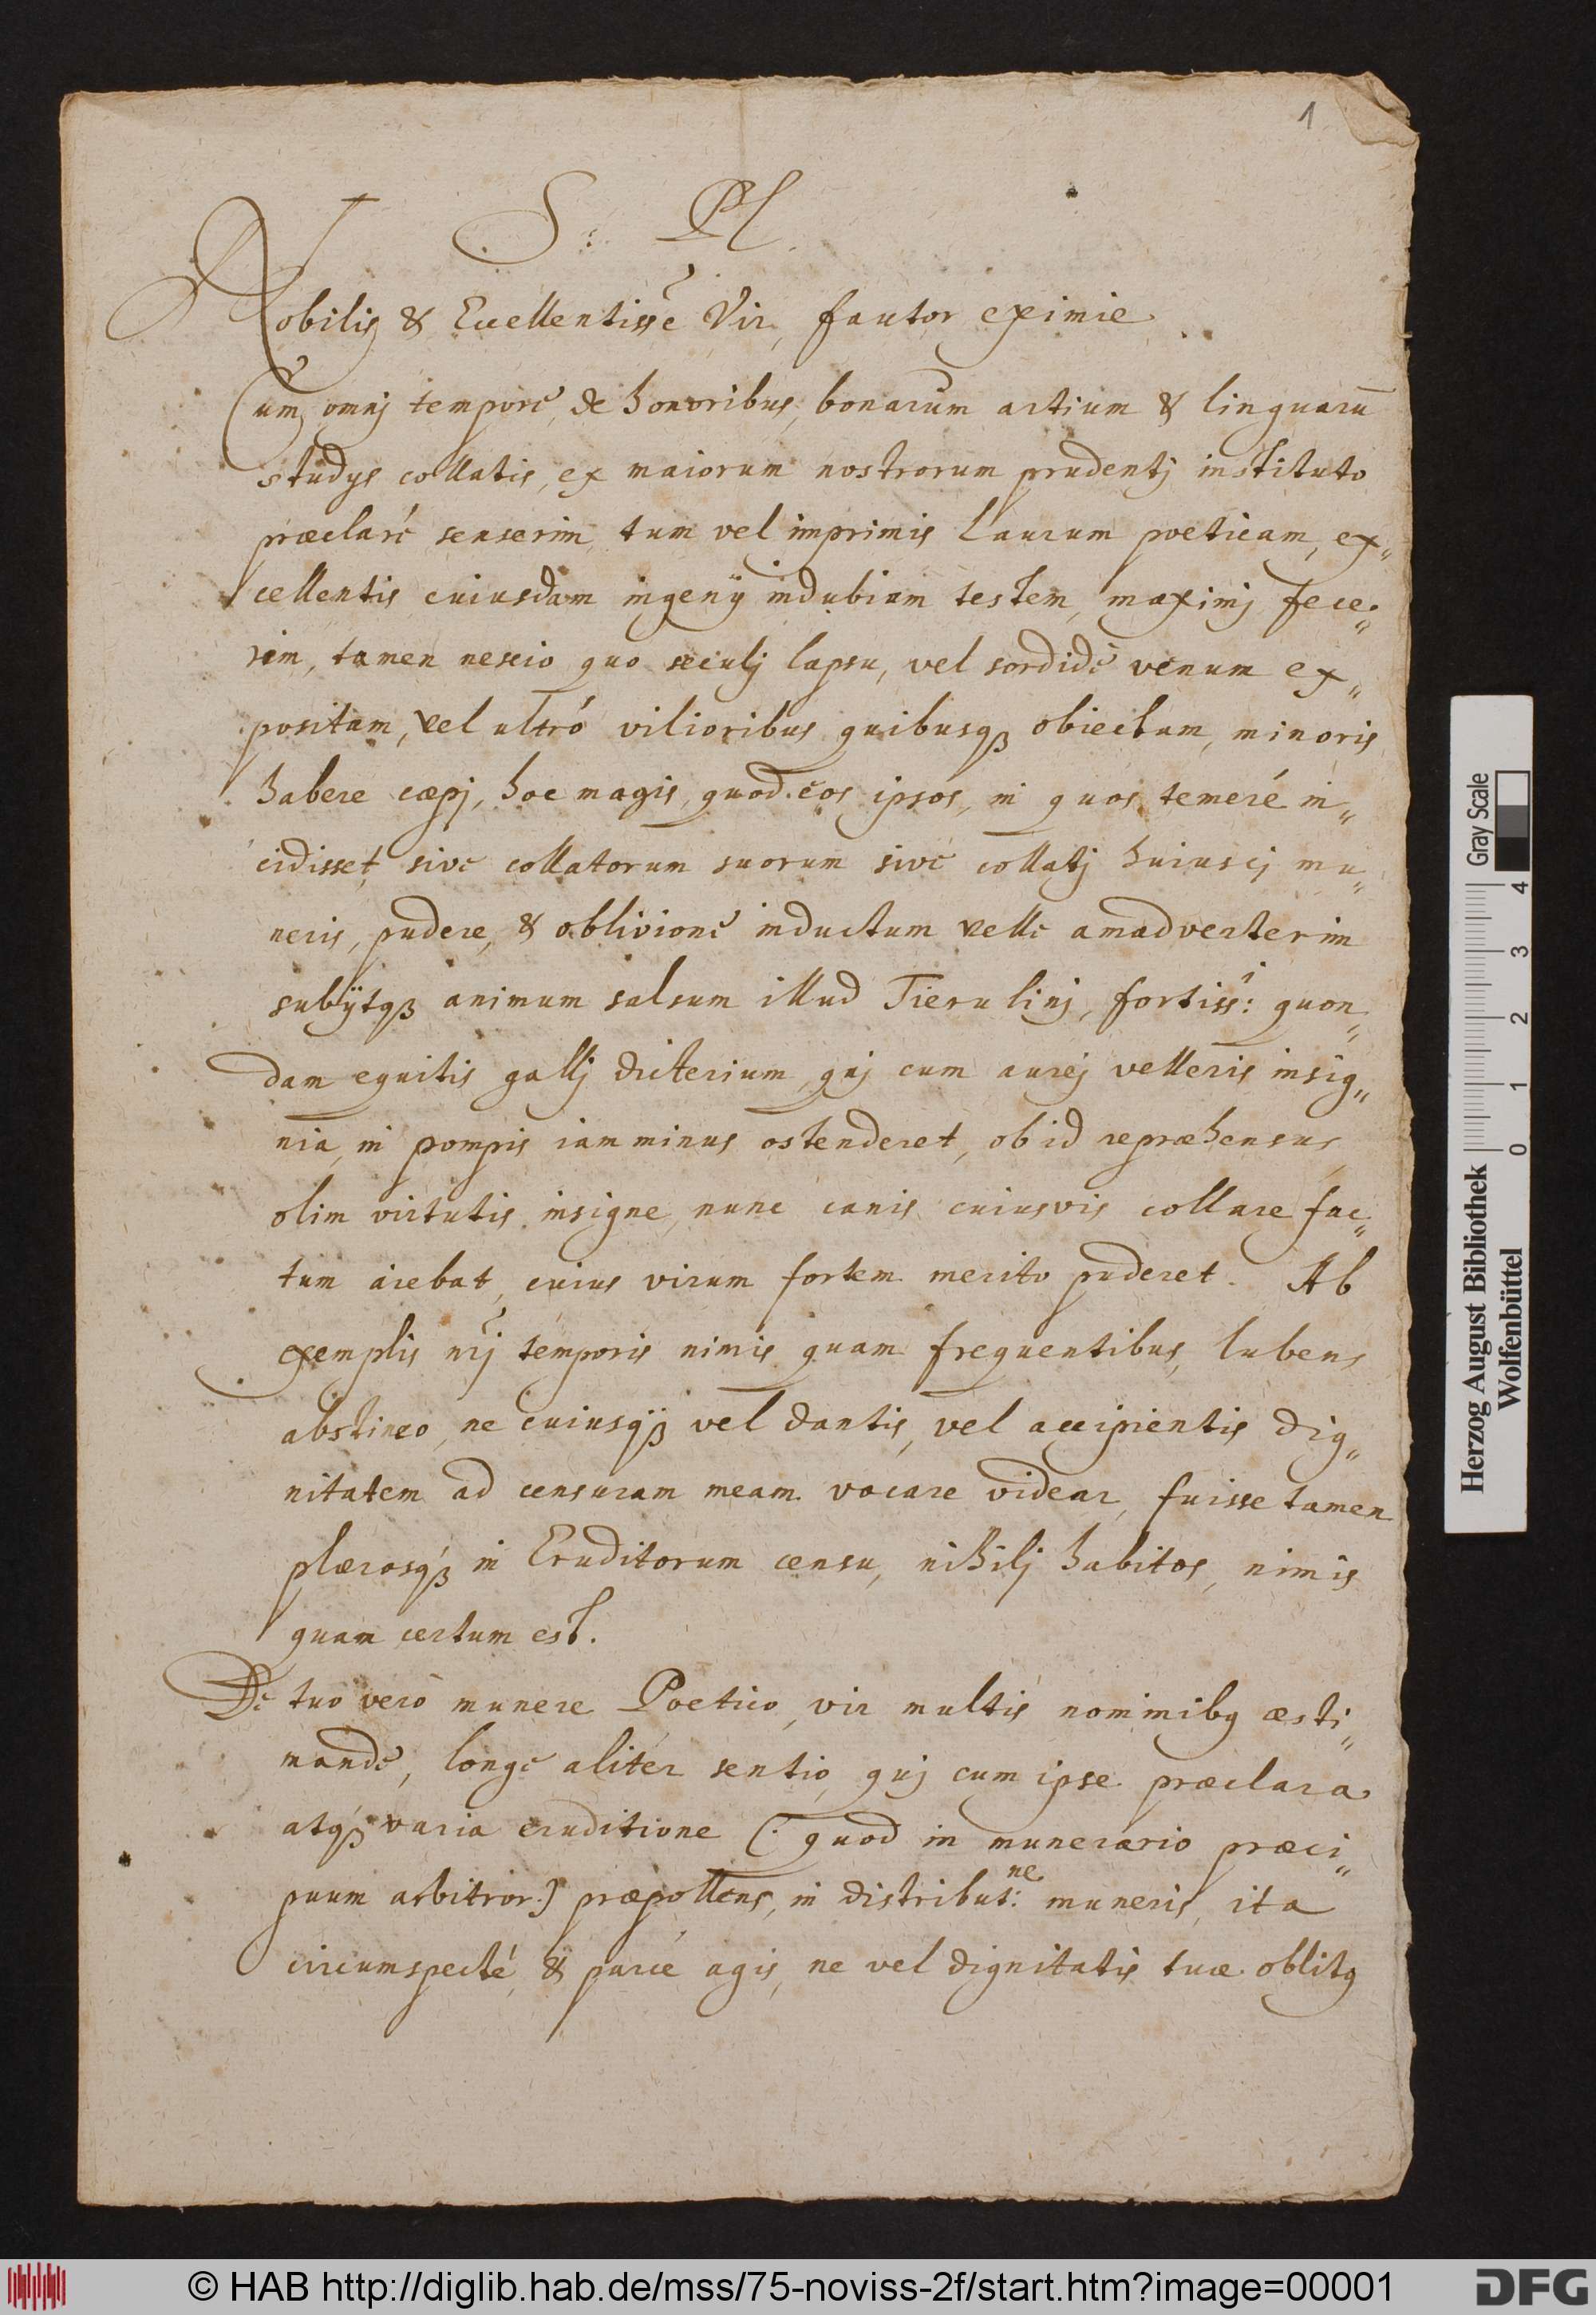 1
S: Pl.
Nobilis & Excellentissē Vir, fautor eximie.
Cum omnj tempore, de honoribus, bonarum artium & linguarū
studys collatis, ex maiorum nostrorum prudentj instituto
præclarè senserim, tum vel imprimis Laurum poeticam, ex„
cellentis cuiusdam ingenÿ indubium testem, maximj fece„
rim, tamen nescio quo seculj lapsu, vel sordidè venum ex„
positam, vel ultró vilioribus quibusqꝫ obiectam, minoris
habere cœpj, hoc magis, quod eos ipsos, in quos temeré in„
cidisset, sive collatorum suorum sive collatj huiuscj mu„
neris, pudere, & oblivione inductum velle amadverterim
subÿtqꝫ animum salsum illud Tierulinj, fortissi: quon„
dam equitis gallj dicterium, quj cum aurej velleris insig„
nia, in pompis iam minus ostenderet, ob id repræhensus
olim virtutis insigne, nunc canis cuiusvis collare fac„
tum aiebat, cuius virum fortem merito puderet. Ab
exemplis nr̃j temporis nimis quam frequentibus, lubens
abstineo, ne cuiusqꝫ vel dantis, vel accipientis dig„
nitatem ad censuram meam vocare videar, fuisse tamen
plærosqꝫ in Eruditorum censu, nihilj habitos, nimis
quam certum est.
De tuo verò munere Poetico, vir multis nominibꝯ æsti„
mande, longe alitèr sentio, quj cum ipse præclara
atqꝫ varia eruditione (: quod in munerario præci„
puum arbitror:) præpollens, in distribut:ne muneris, ita
circumspecté, & parcé agis, ne vel dignitatis tuæ oblitꝯ
Gray Scale
0 1 2 3 4
Herzog August Bibliothek
Wolfenbüttel
© HAB http://diglib.hab.de/mss/75-noviss-2f/start.htm?image=00001
DFG